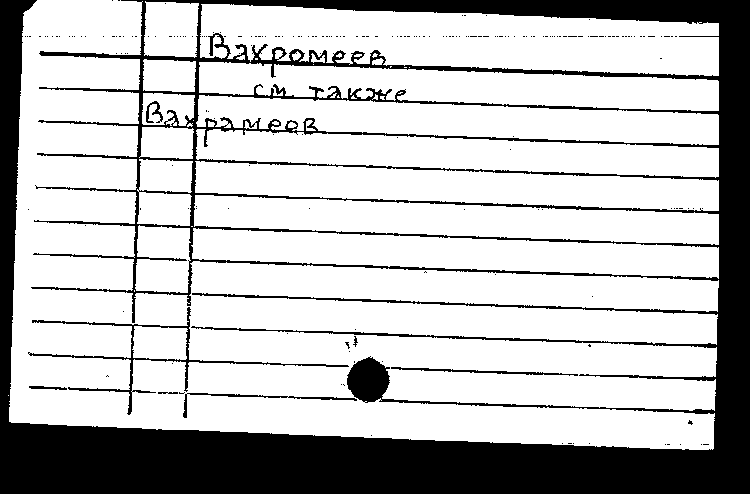 Вахромеев
см. также
Вахрамеев